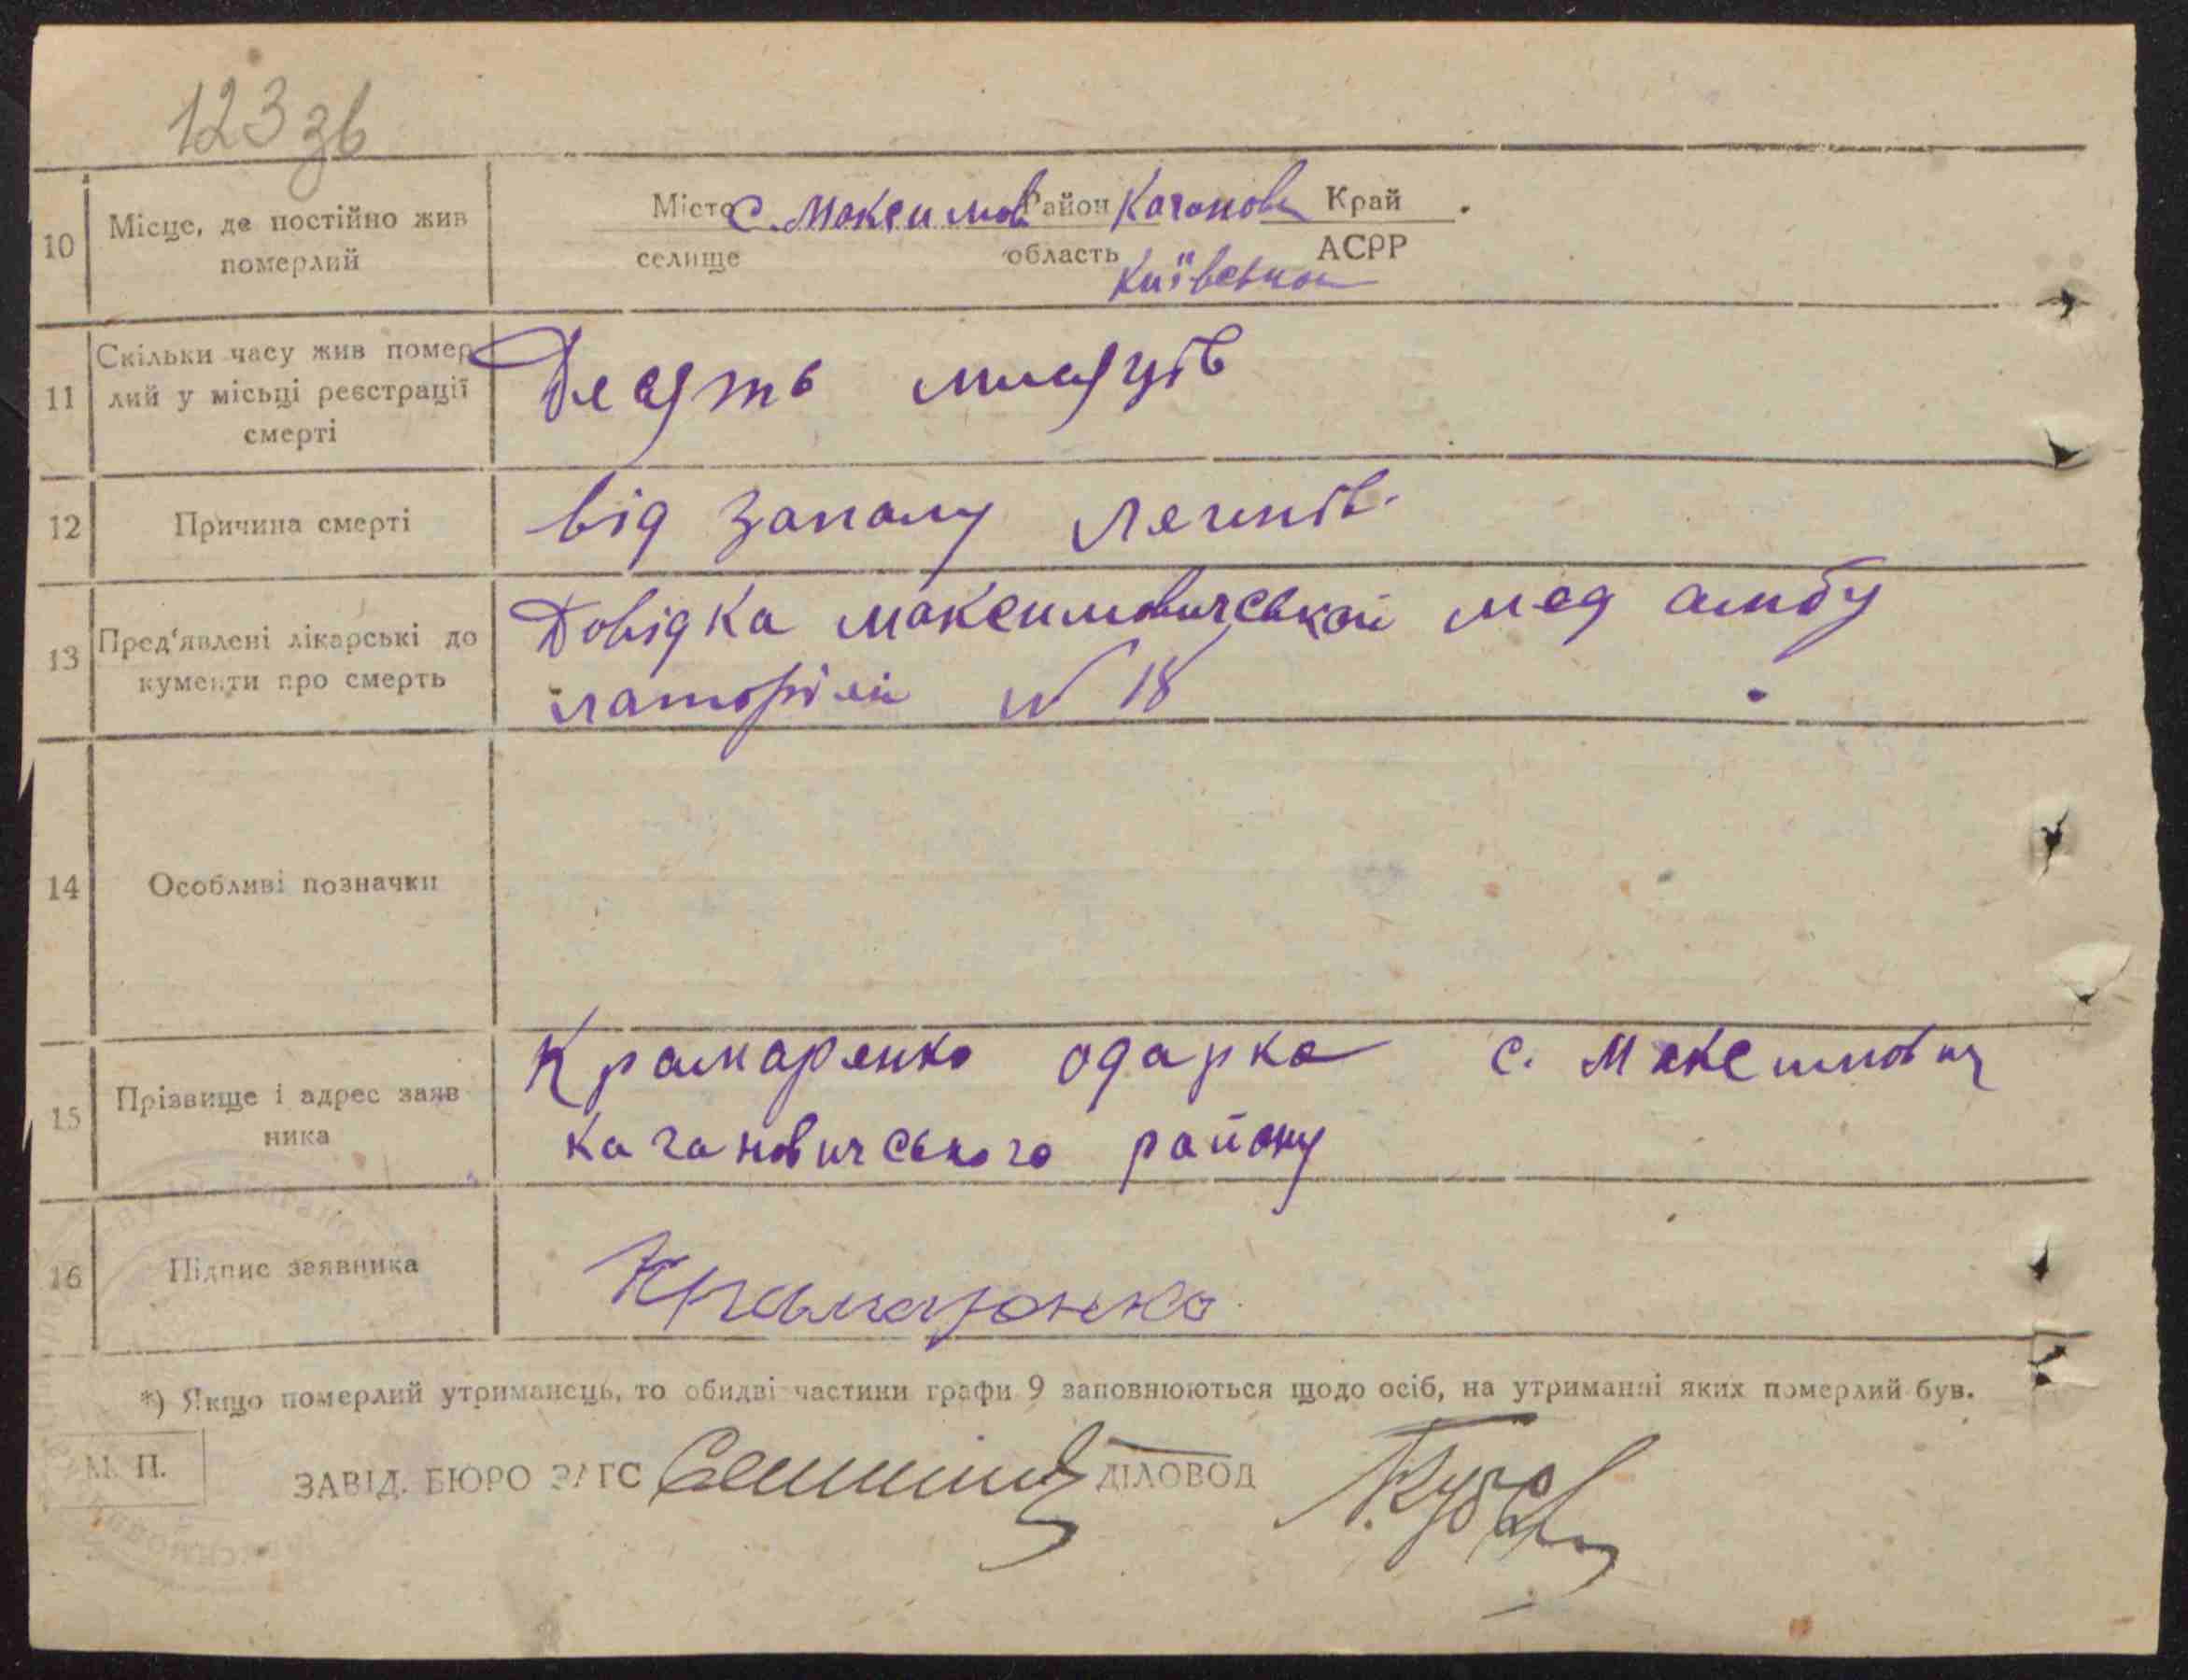 123 зв
10 Місце, де постійно жив померлий
Місто с. Максимов Район Каганов Край
селище область Київської АСРР
11 Скільки часу жив помер
лий у місьці реєстрації
смерті
Десять мисяців
12 Причина смерті
від запалу легнів.
13 Пред'явлені лікарські до
кументи про смерть
Довідка максимовичської мед амбу
латорієй № 18
14 Особливі позначки
15 Прізвище і адрес заяв
ника
Крамаренко одарка с. Максимович
Кагановичського району
16 Підпис заявника
Крамаренко
*) Якщо померлий утриманець, то обидві частини графи 9 заповнюються щодо осіб, на утриманні яких померлий був.
М. П.
ЗАВІД. БЮРО ЗАГС ДІЛОВОД